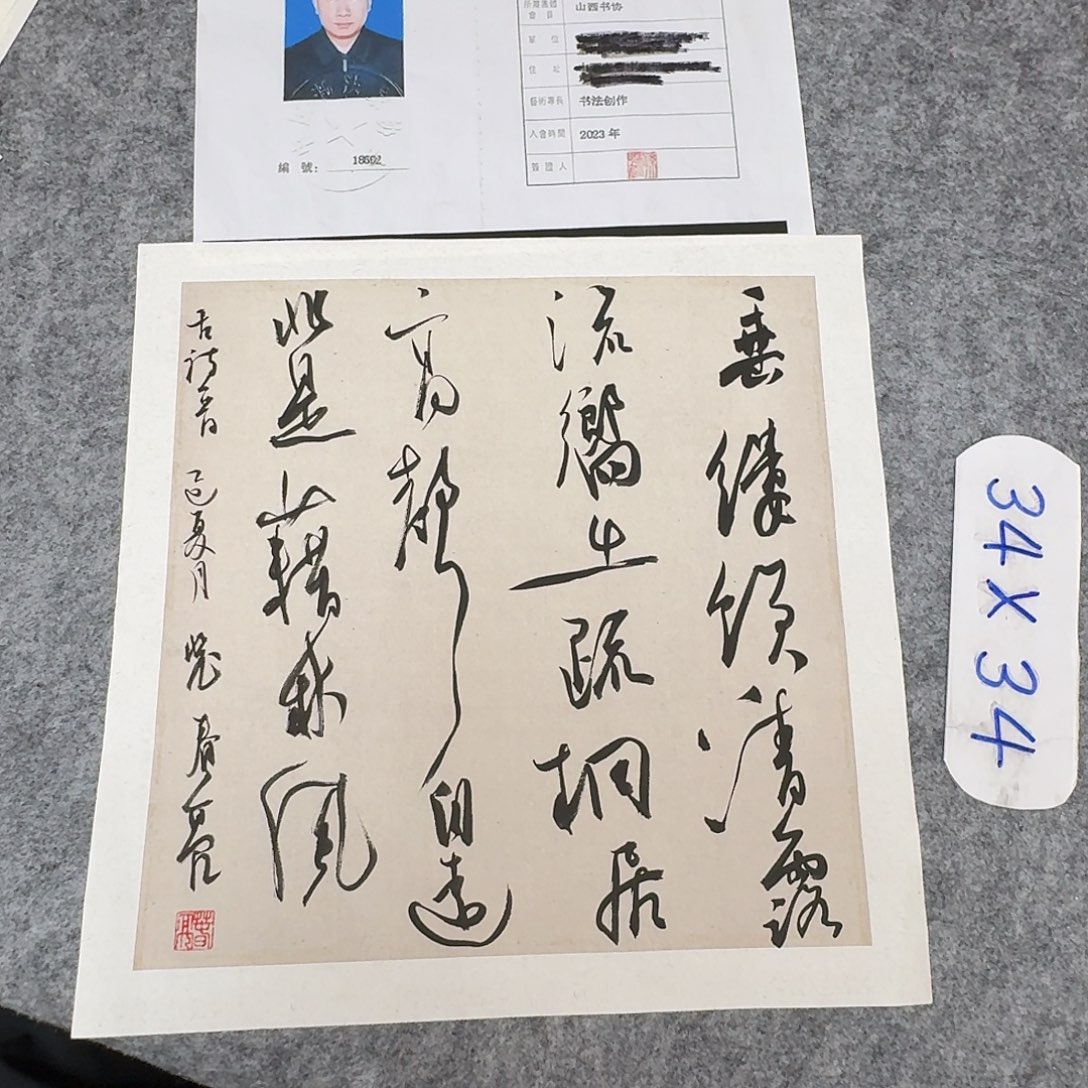 山西书协
單 位
住 址
藝術專長 书法创作
入會時間 2023 年
簽 證 人
編 號: 18592
垂緌飲清露
流響出疏桐居
高聲自遠
非是藉秋風
古詩一首 乙巳夏月
34X34